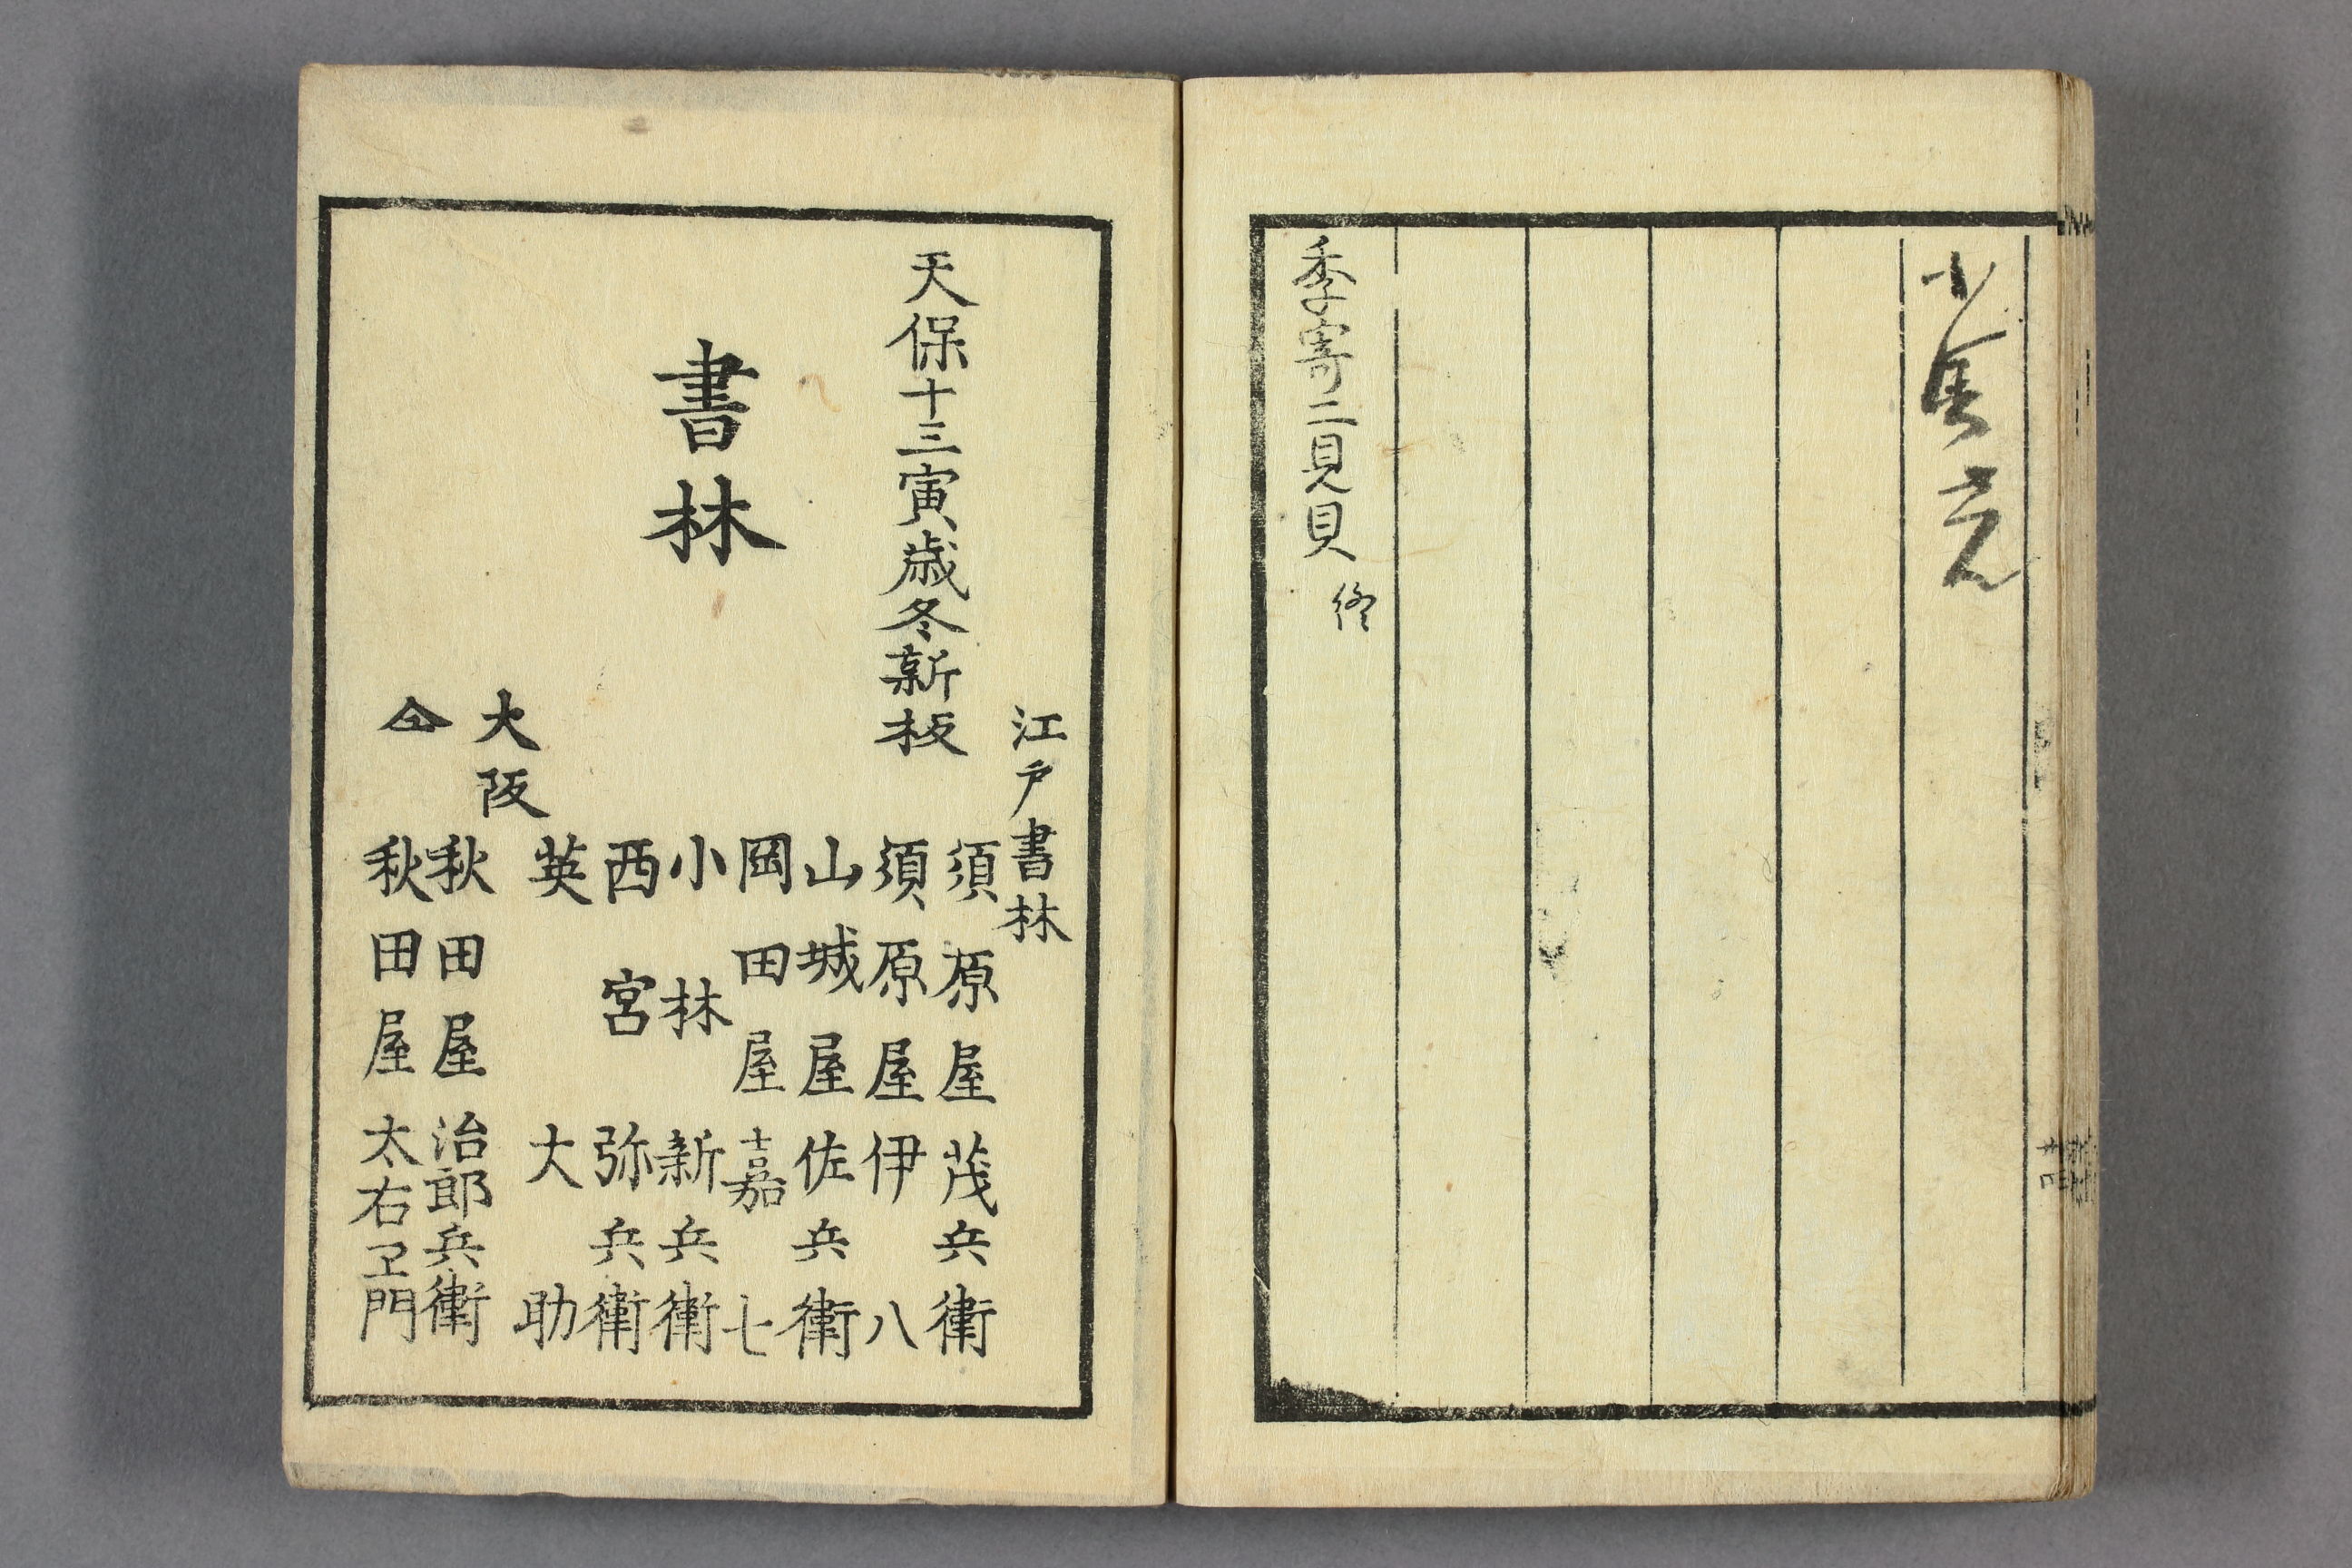 季寄二見貝 終
江戸書林
天保十三寅歳冬新板
書林
須原屋茂兵衛
須原屋伊八
山城屋佐兵衛
岡田屋嘉七
小林新兵衛
西宮弥兵衛
英大助
大阪
秋田屋治郎兵衛
仝
秋田屋太右ヱ門